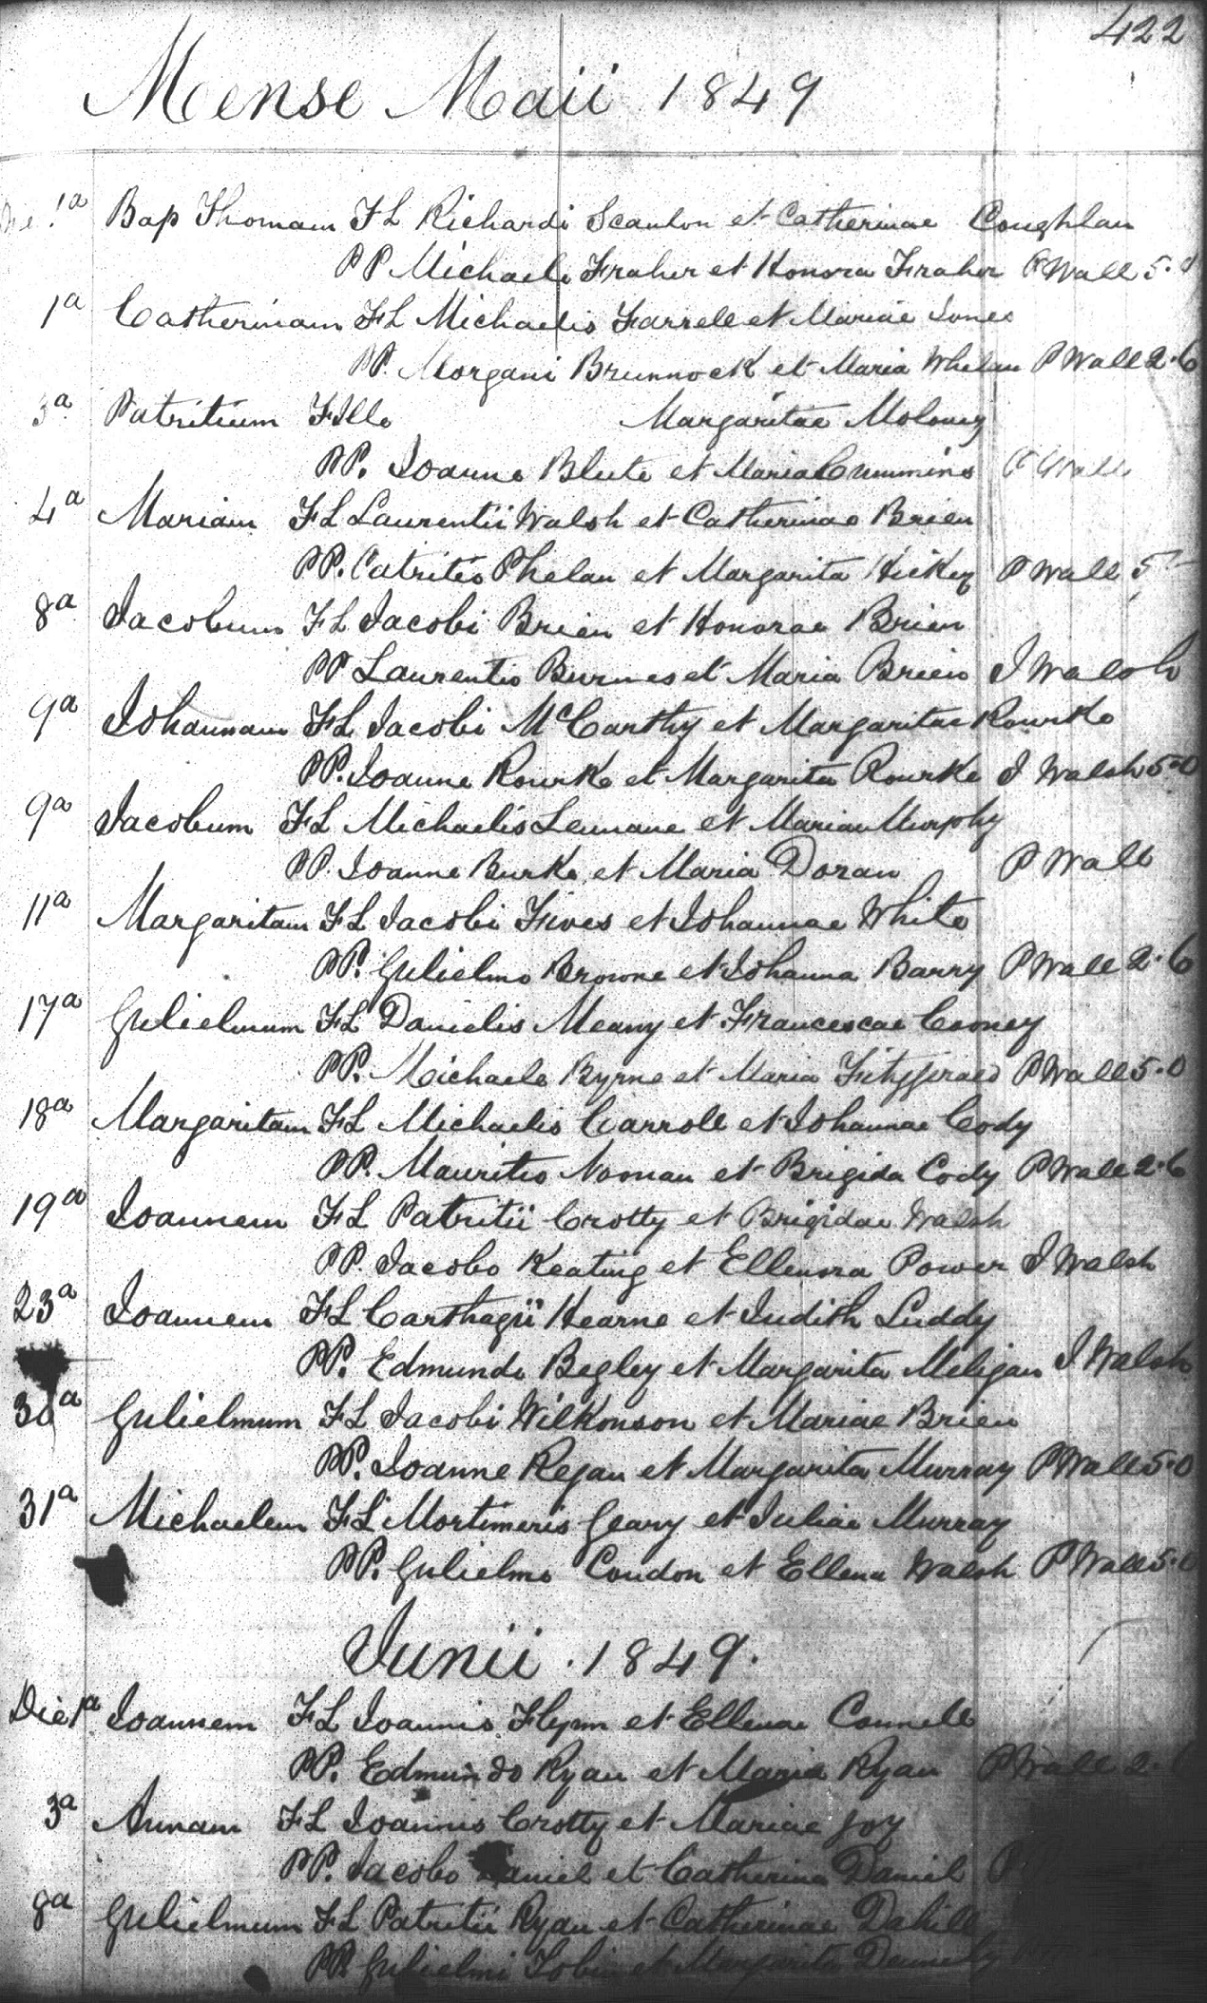 422
Mense Maii 1849
Die 1a Bap Thomam FL Richardi Scanlon et Catherinae Coughlan
PP Michaele Fraher et Honora Fraher P Wall 5.0
1a Catherinam FL Michaelis Farrell et Mariae Jones
PP. Morgani Brunnock et Maria Whelan P Wall 2.6
3a Patritium FIlle Margaritae Moloney
PP. Joanne Blute et Maria Cummins P Wall
4a Mariam FL Laurentii Walsh et Catherinae Brien
PP. Patritio Phelan et Margarita Hickey P Wall 5
8a Jacobum FL Jacobi Brien et Honorae Brien
PP Laurentio Burnes et Maria Brien J Walsh
9a Johannam FL Jacobi McCarthy et Margaritae Rourke
PP. Joanne Rourke et Margarita Rourke J Walsh 5-0
9a Jacobum FL Michaelis Lennane et Mariae Murphy
PP. Joanne Burke et Maria Doran P Wall
11a Margaritam FL Jacobi Fives et Johannae White
PP. Gulielmo Browne et Johanna Barry P Wall 2.6
17a Gulielmum FL Danielis Meany et Francescae Cooney
PP. Michaele Byrne et Maria Fitzgerald P Wall 5.0
18a Margaritam FL Michaelis Carroll et Johannae Cody
PP. Mauritio Noonan et Brigida Cody P Wall 2.6
19a Joannem FL Patritii Crotty et Brigidae Walsh
PP. Jacobo Keating et Ellenora Power J Walsh
23a Joannem FL Carthagii Hearne et Judith Luddy
PP. Edmundo Begley et Margarita Meligan J Walsh
30a Gulielmum FL Jacobi Wilkonson et Mariae Brien
PP. Joanne Regan et Margarita Murray P Wall 5.0
31a Michaelem FL Mortimeris Geary et Juliae Murray
PP. Gulielmo Condon et Ellena Walsh P Wall 5.0
Junii . 1849.
Die 1a Joannem FL Joannis Flynn et Ellenae Connell
PP. Edmundo Ryan et Maria Ryan P Wall 2.6
3a Annam FL Joannis Crotty et Mariae Joy
PP. Jacobo Daniel et Catherina Daniel P
8a Gulielmum FL Patritii Ryan et Catherinae Dahill
PP. Gulielmi Tobin et Margarita